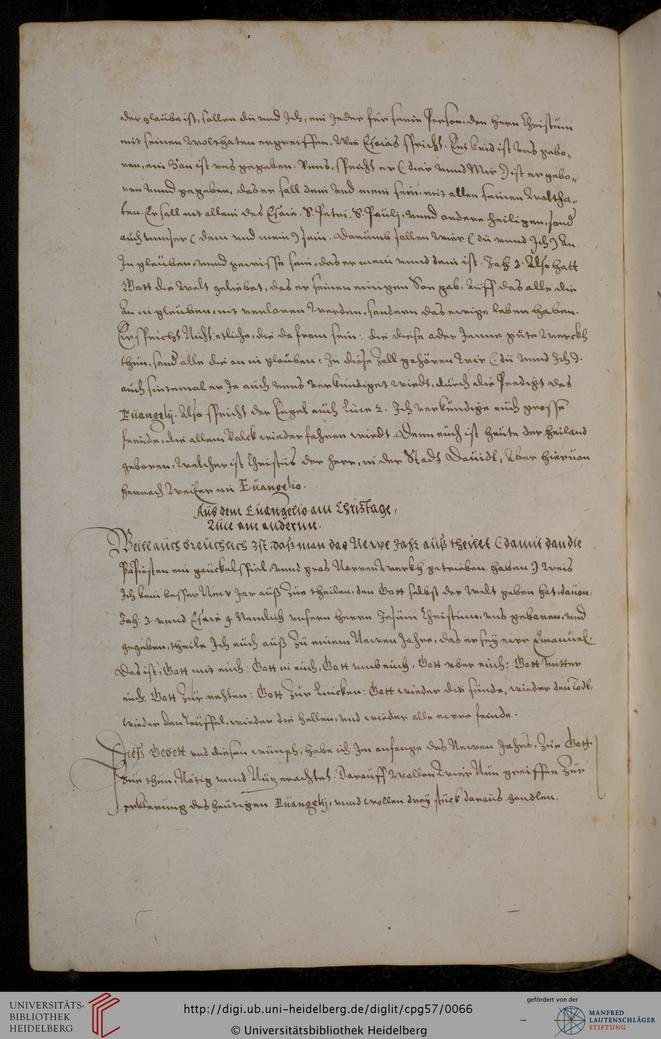 der glaube ist, sollen du vnd Ich, ein Jeder für seine Person, den hern Christum
mit seinen wolthaten ergreiffen, Wie Esaias spricht. Ein kind ist vns gebo,
ren, ein Son ist vns gegeben. Vnns, spricht er (dier vnnd Mir) ist er gebo,
ren vnnd gegeben, das er soll dein vnd mein sein, mit allen seinen woltha,
ten. Er soll nit allein des Esaie. S. Petri. S. Paulj. vnnd andere heiligen, sond
auch vnnser (dein vnd mein) sein. Darumb sollen wier (du vnnd Ich) An
In gleuben, vnnd gewisse sein, das er mein vnnd dein ist. Joh. 3. Also hatt
Gott die Welt geliebet, das er seinen einigen Son gab. Auff das alle die
an in gleuben, nit verloren werden, sondern das ewige leben haben.
Er spricht Nicht etliche, die da from sein: die diese oder Jenne gute werckh
thun, sond alle die an in glauben. In diese Zall gehören wir (du vnnd Ich).
auch sintemal er Je auch vnns verkündiget wirdt, durch die Predigt des
Euangelij. Also spricht der Engel auch Luce 2. Ich verkündige euch grosse
freude, die allem Volck wiederfahren wirdt. Denn euch ist heute der heiland
geboren, welcher ist Christus der herr, in der Stadt Dauidt, Aber hieruon
hernach weiter im Euangelio.
Aus dem Euangelio am Christage,
Luce am andernn.
Weill auch breuchlich Ist, das man das Newe Jahr auß theilet (damit dan die
Papisten ein gauckelspiel, vnnd gros Narrenwerckh getrieben haben) weis
Ich kein besser New Jar auß zu theilen, den Gott selbst der welt geben hat, dauon
Joh. 3. vnnd Esaie 9. Nemlich vnsern herrn Jesum Christum, vns geboren, vnd
gegeben, theile Ich euch auß zu einem Newen Jahre, das er sey ewr Emanuel.
Das ist, Gott mit euch: Gott in euch, Gott vmb euch, Gott vber euch: Gott vnter
euch: Gott zur rechten: Gott zur Lincken: Gott wieder die sünde, wieder den Todt,
wieder den Teuffel, wieder die hellen, vnd wieder alle ewre feinde.
Dieß Gebett vnd diesen wunsch, habe ich Im anfange des Newen Jahrs, zur Gott
thun, Nötig vnnd Nütz erachtet. Darauff wollen wier Nun greiffen zur
erklerung des heutigen Euangelij, vnnd wollen drey stück daraus handlen.
UNIVERSITÄTS-
BIBLIOTHEK
HEIDELBERG
http://digi.ub.uni-heidelberg.de/diglit/cpg57/0066
© Universitätsbibliothek Heidelberg
gefördert von der
MANFRED
LAUTENSCHLÄGER
STIFTUNG